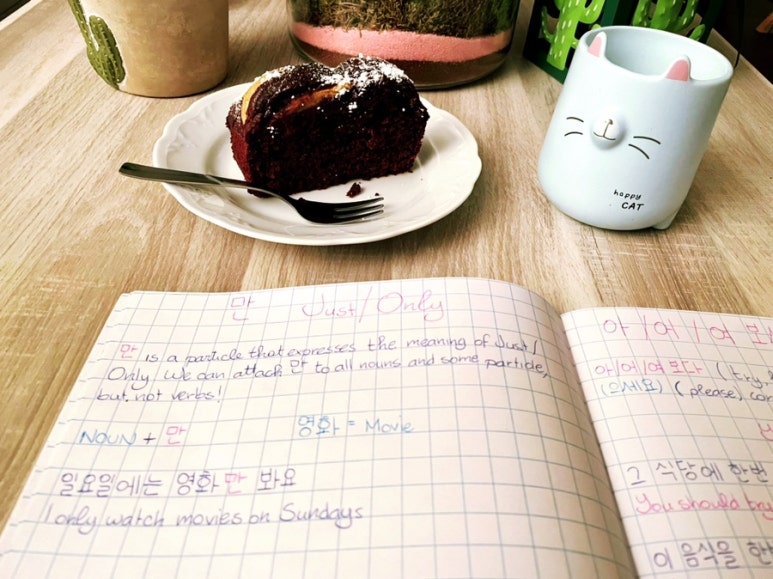 happy
CAT
만 Just/Only
만 is a particle that expresses the meaning of Just/
Only. We can attack 만 to all nouns and some particle,
but, not verbs!
NOUN + 만
영화 = Movie
일요일에는 영화만 봐요
I only watch movies on Sundays
아/어/여
아/어/여 보다 (try,
(으세요) (please)
그 식당에 한번
You should try
이 음식을 한